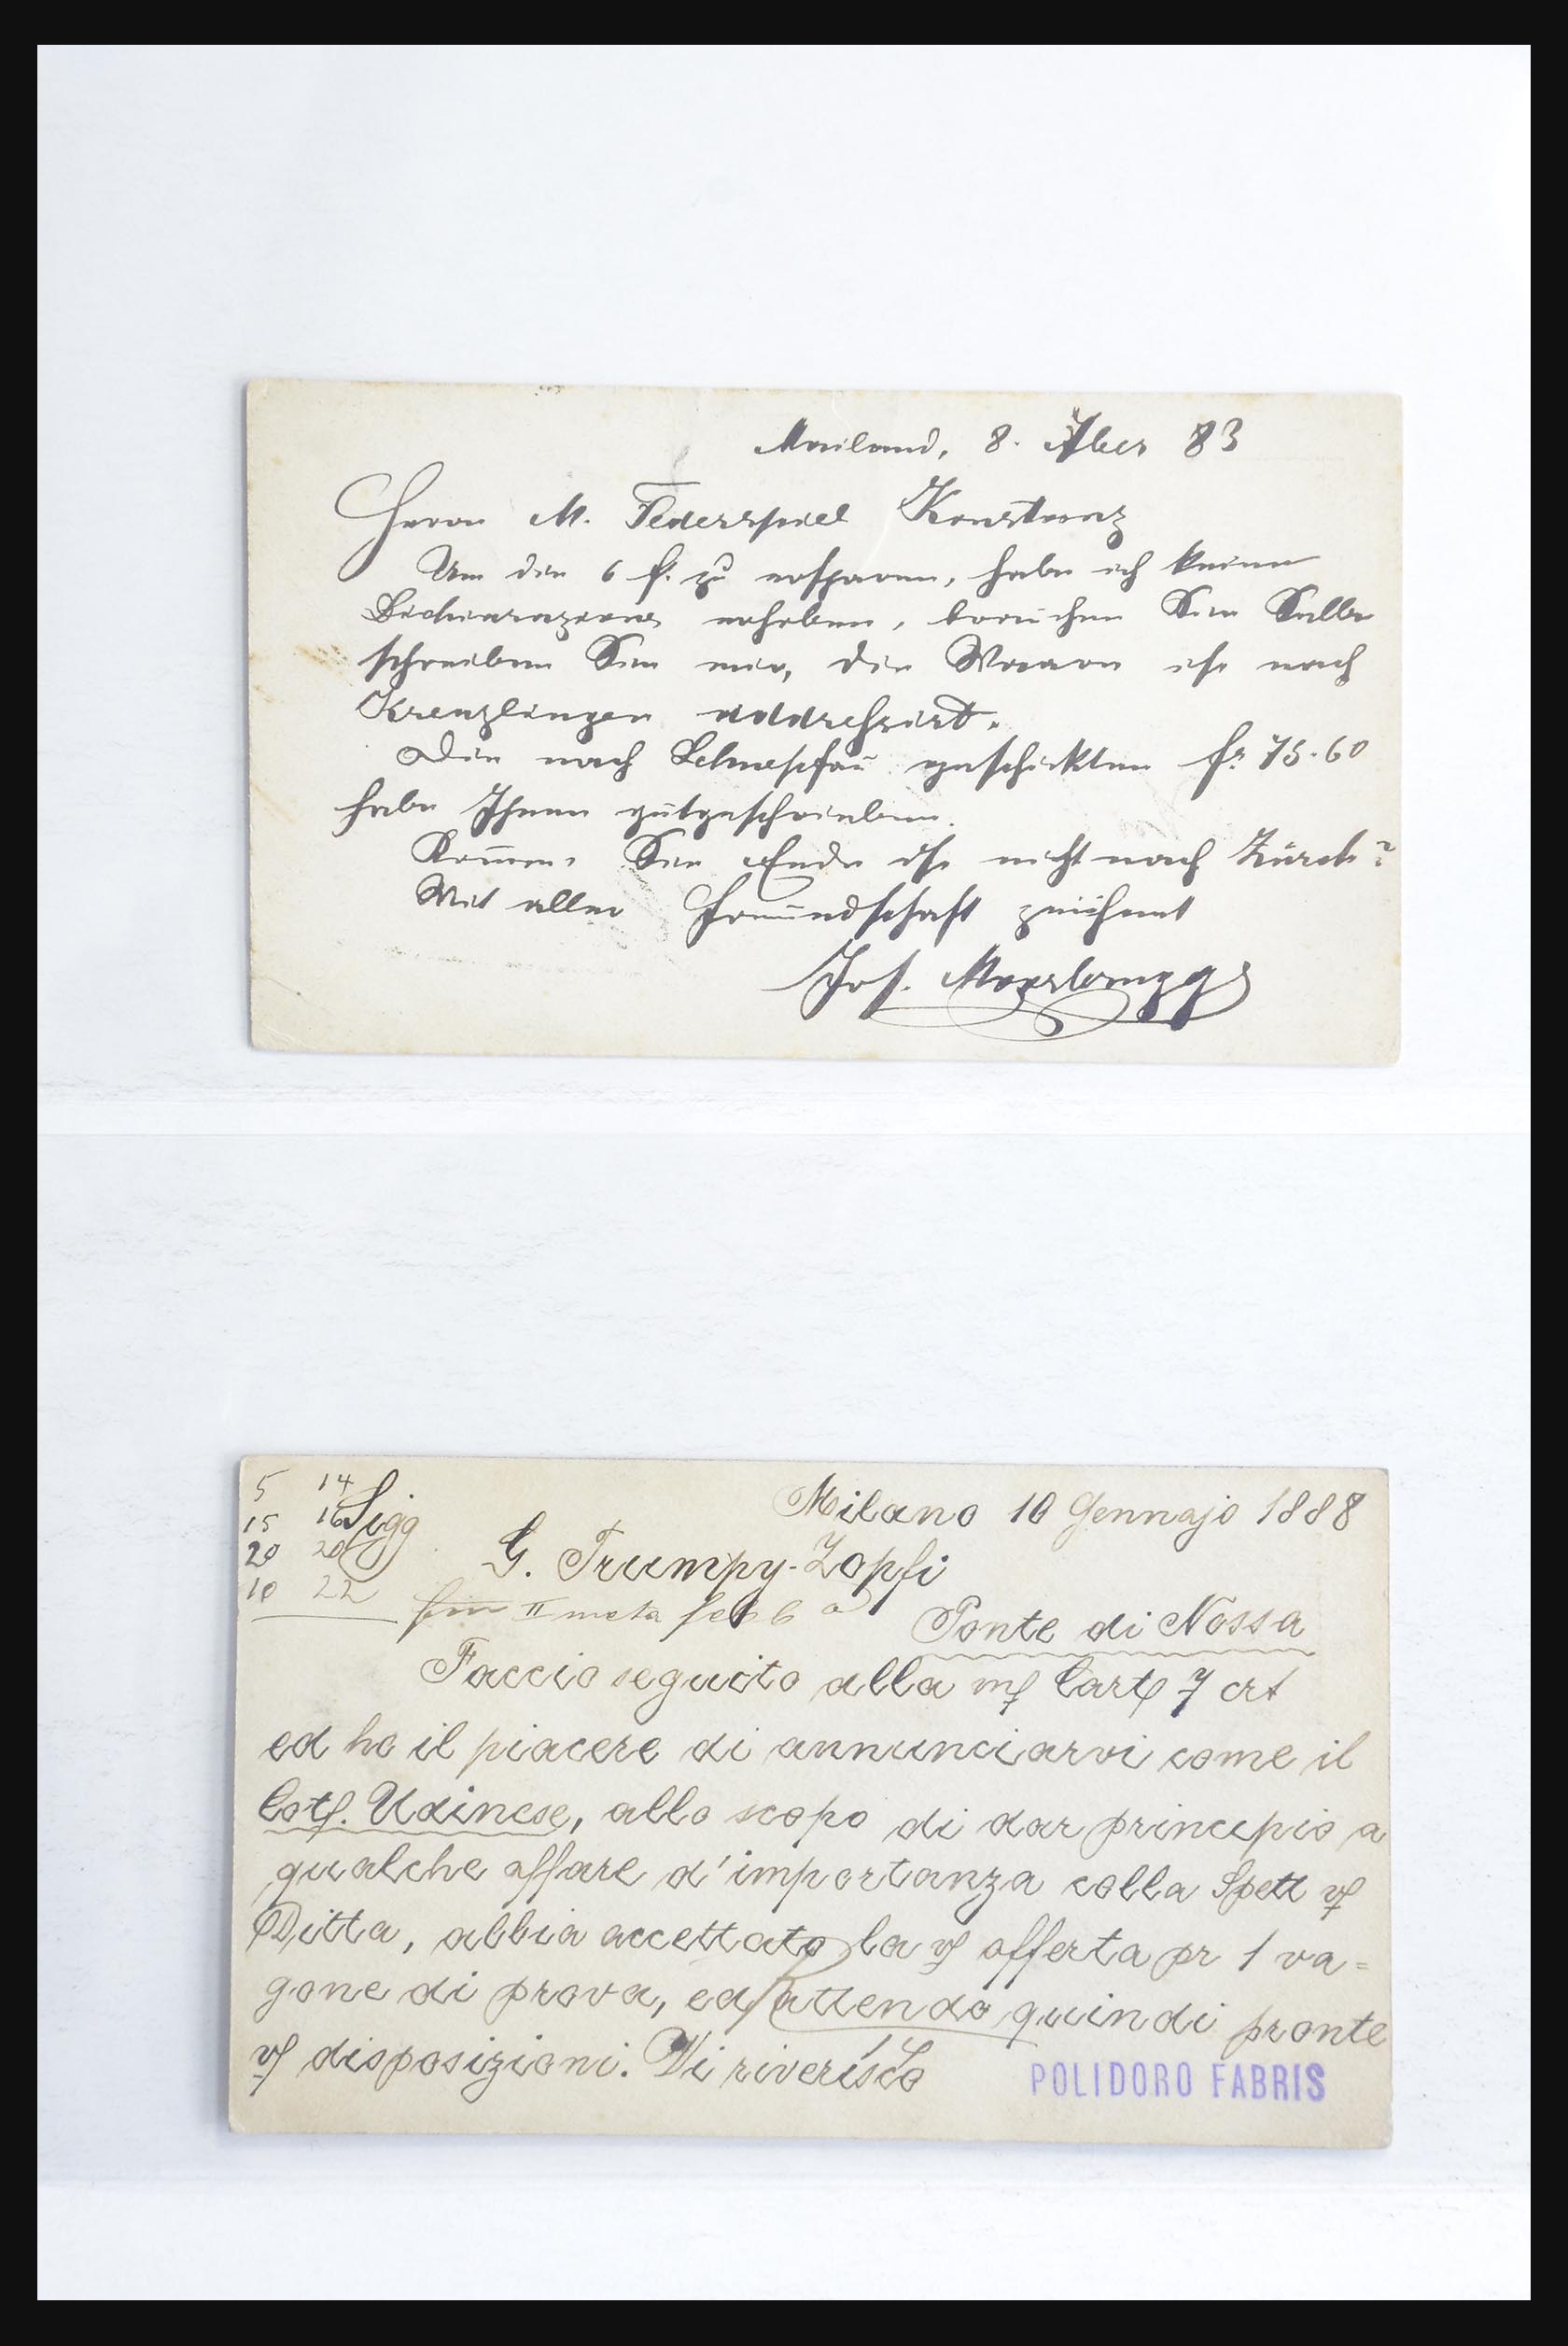 Mailand, 8. 7ber 83
Herrn M. Federspiel Konstanz
Um die 6 f. zu ersparen, habe ich keine
Dichiarazione erhoben, brauchen Sie Selbe
schreiben Sie mir, die Waaren ist nach
Kreuzlingen addressirt.
Die nach geschickten fr. 75.60
habe Ihnen gutgeschrieben.
Komen Sie Ende dss nicht nach Zürich?
Mit aller Freundschaft zeichnet
Jos.
5 14
15 16
20 20
10 22
Sigg
Milano 10 Gennajo 1888
G. Trumpy-Zopfi
II meta feb
Ponte di Nossa
Faccio seguito alla m/ Cart/ 7 crt
ed ho il piacere di annunciarvi come il
Cot/. Udinese, allo scopo di dar principio a
qualche affare d'importanza colla Spett v/
Ditta, abbia accettato la v/ offerta pr 1 va=
gone di prova, ed attendo quindi pronte
v/ disposizioni. Vi riverisco
POLIDORO FABRIS